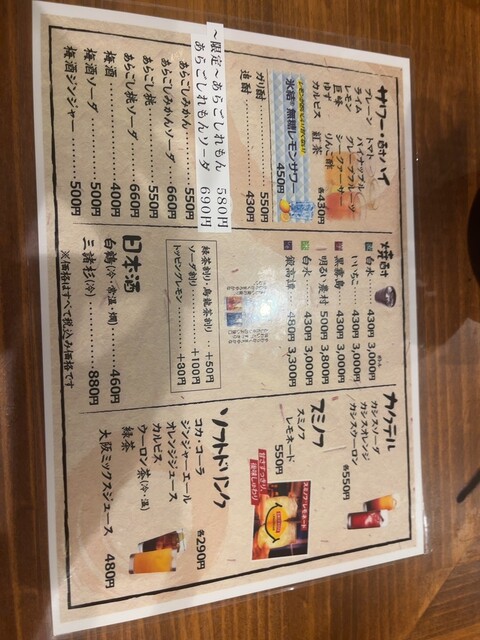 サワー・酎ハイ
プレーン トマト
ライム パイナップル
レモン グレープフルーツ
巨峰 シークァーサー
ゆず りんご酢
カルピス 紅茶
各430円
氷結®無糖レモンサワー
450円
ガリ酎 550円
追酎 430円
～限定～あらごしれもん 580円
あらごしれもんソーダ 690円
あらごしみかん 550円
あらごしみかんソーダ 660円
あらごし桃 550円
あらごし桃ソーダ 660円
梅酒 400円
梅酒ソーダ 500円
梅酒ジンジャー 500円
焼酎
白水 430円 3,000円
いいちこ 430円 3,000円
黒霧島 430円 3,000円
明るい農村 500円 3,800円
白水 430円 3,000円
鍛高譚 480円 3,300円
緑茶割り・烏龍茶割り +50円
ソーダ割り +100円
トッピングレモン +80円
日本酒
白鶴(冷・常温・燗) 460円
三諸杉(冷) 880円
※価格はすべて税込み価格です
カクテル
カシスソーダ
カシスオレンジ
カシスウーロン
各550円
スミノフ
スミノフ
レモネード
550円
スミノフ・レモネード
甘さすっきり
後味しゅわり
ソフトドリンク
コカ・コーラ
ジンジャーエール
オレンジジュース
カルピス
ウーロン茶(冷・温)
緑茶
各290円
大阪ミックスジュース 480円